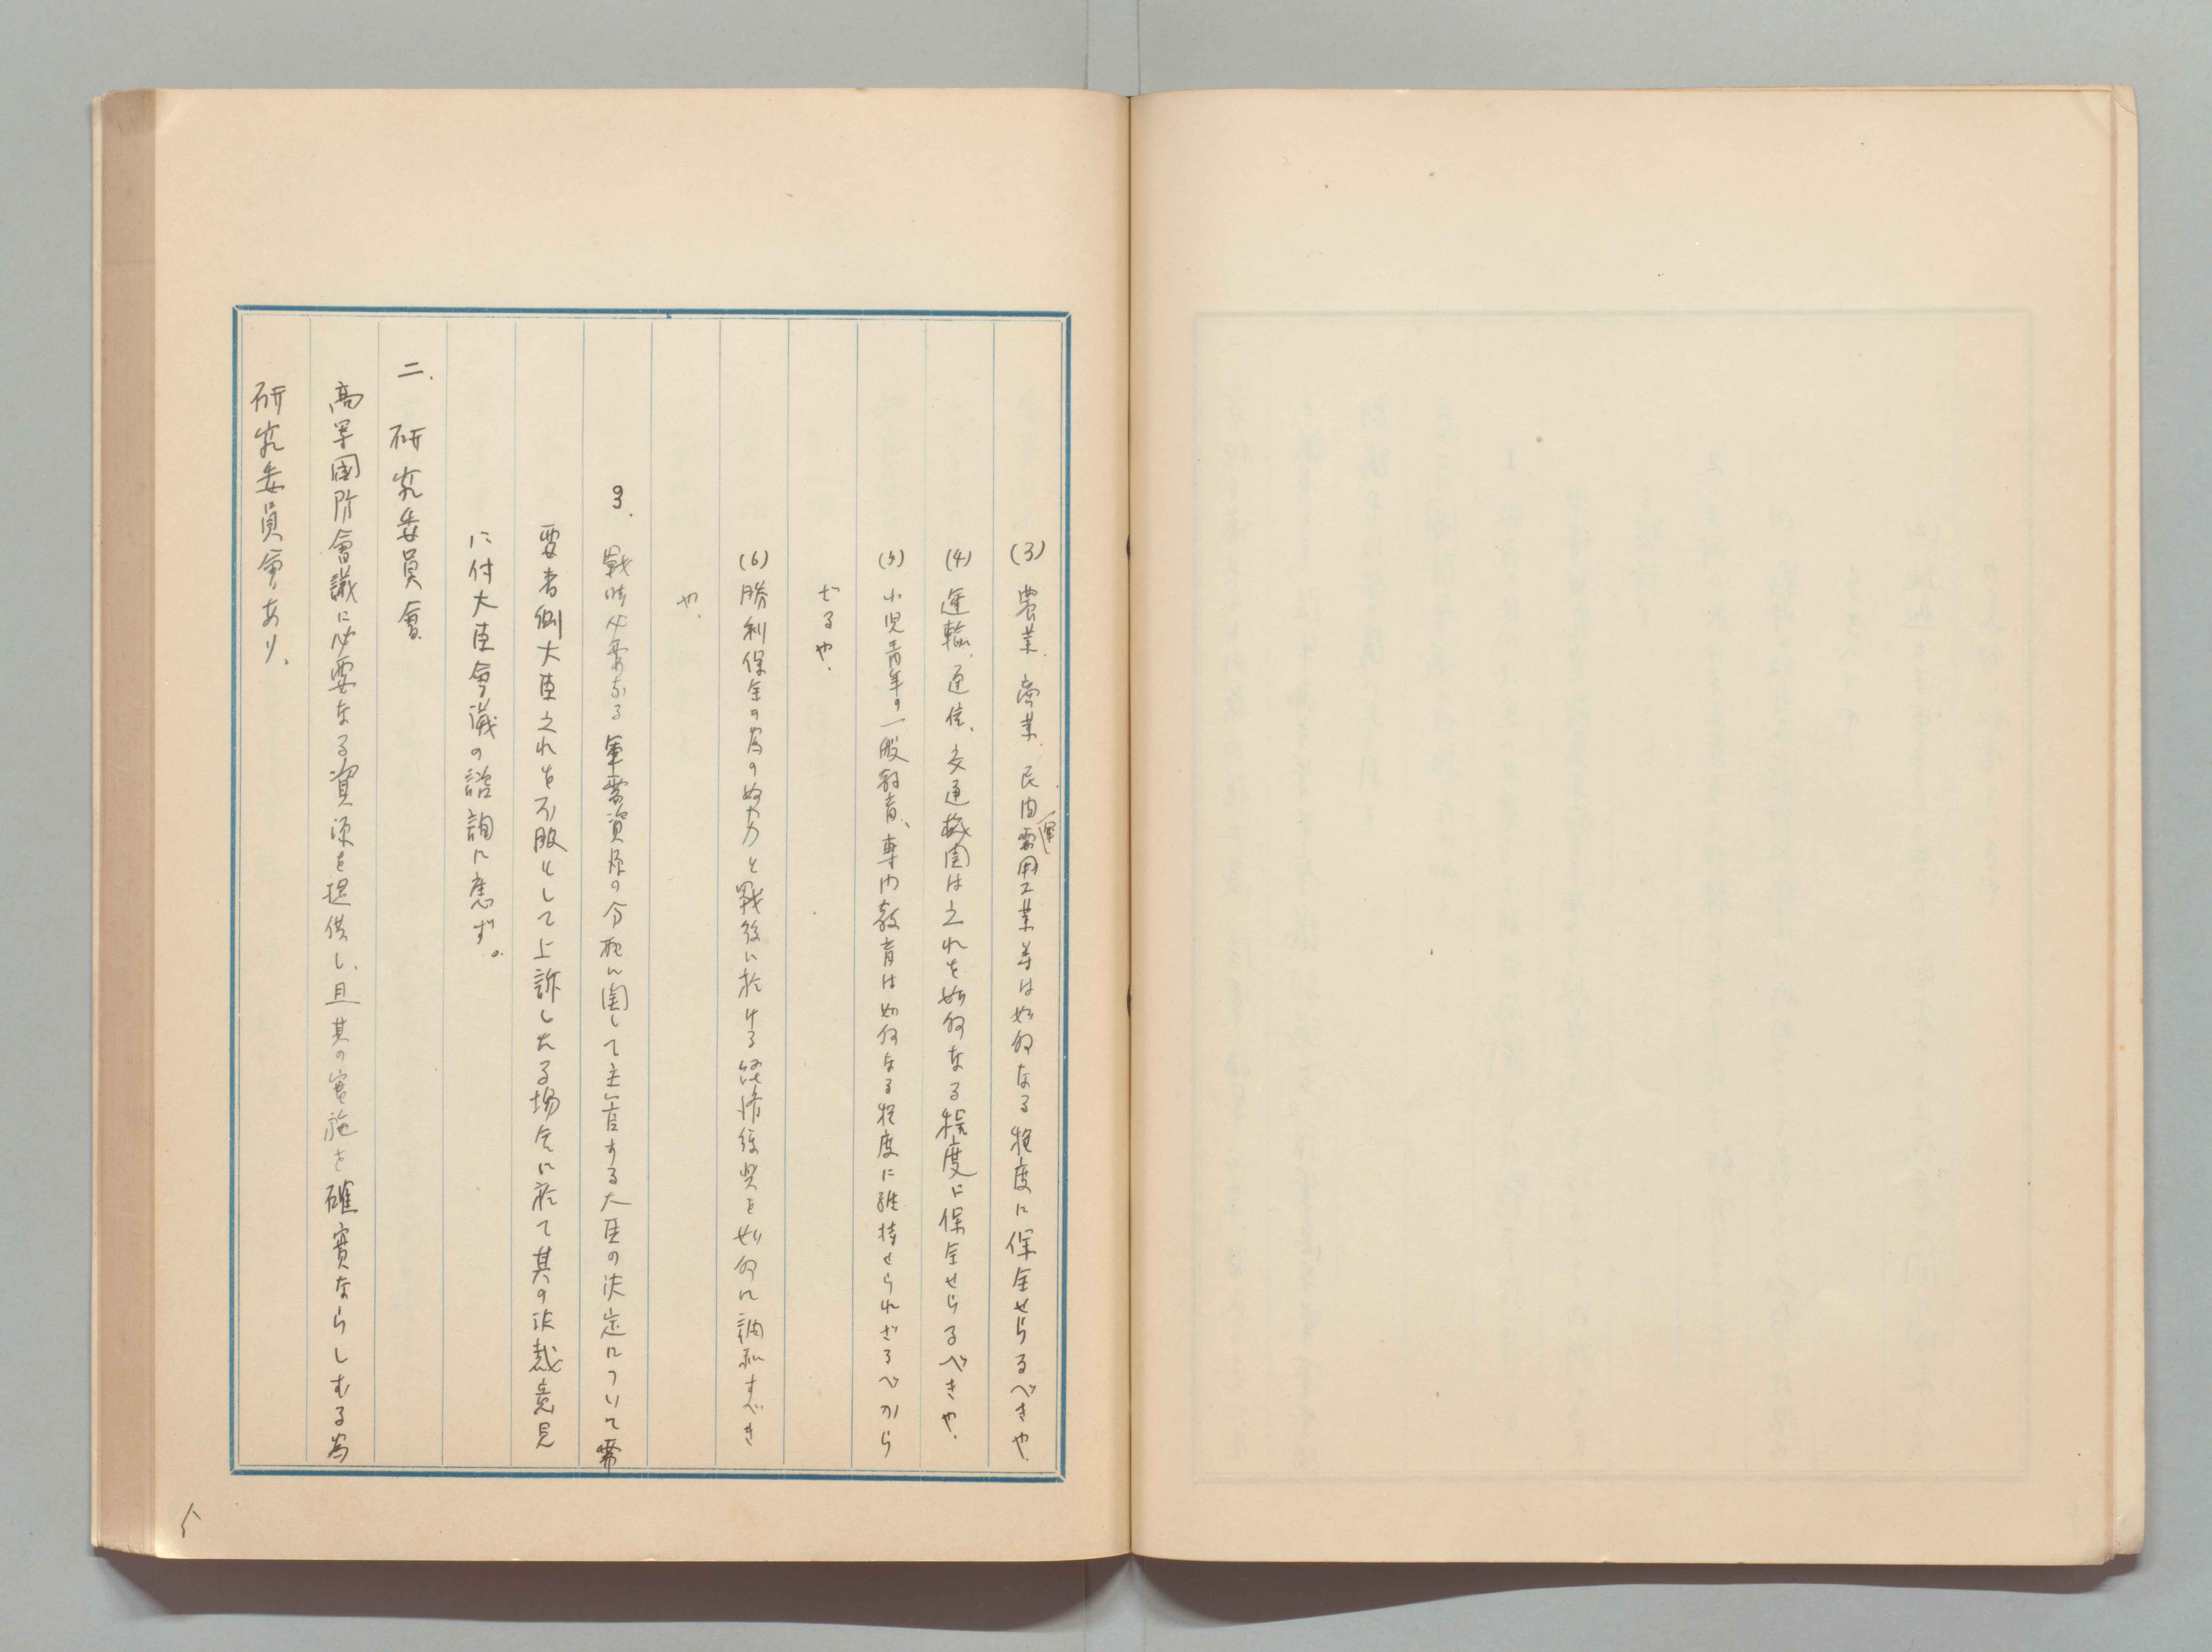 (3) 農業、商業、民間軍需用工業等は如何なる程度に保全せらるべきや.
(4) 運輸、通信、交通機関は之れを如何なる程度に保全せらるべきや.
(5) 小児青年の一般教育、専門教育は如何なる程度に維持せられざるべから
ざるや.
(6) 勝利保全の為の努力と戰後に於ける 復興を如何に調和すべき
や.
3. 戰時必要なる軍需資源の分配に関して主管する大臣の決定について需
要者側大臣之れを不服として上訴したる場合に於て其の決裁意見
に付大臣會議の諮詢に應ず。
二. 研究委員會
高等國防會議に必要なる資源を提供し、且其の實施を確實ならしむる為
研究委員會あり、